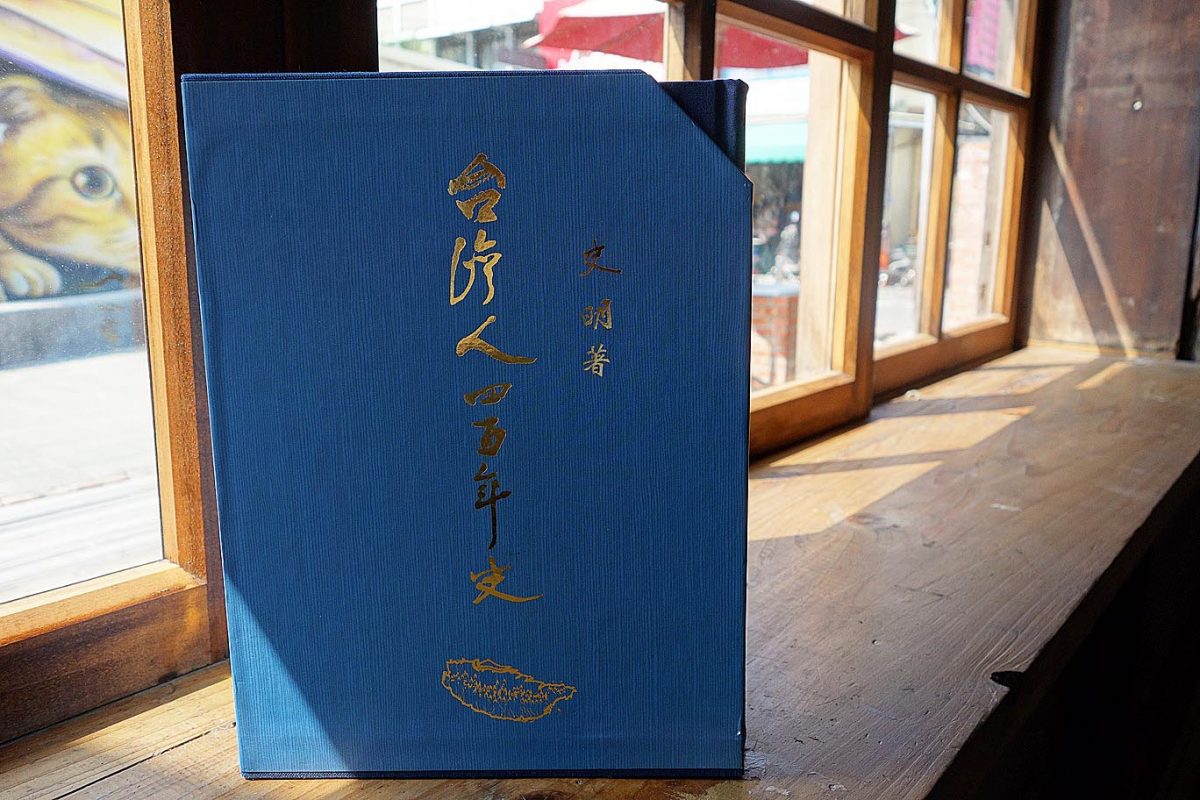 史明著
台湾人四百年史